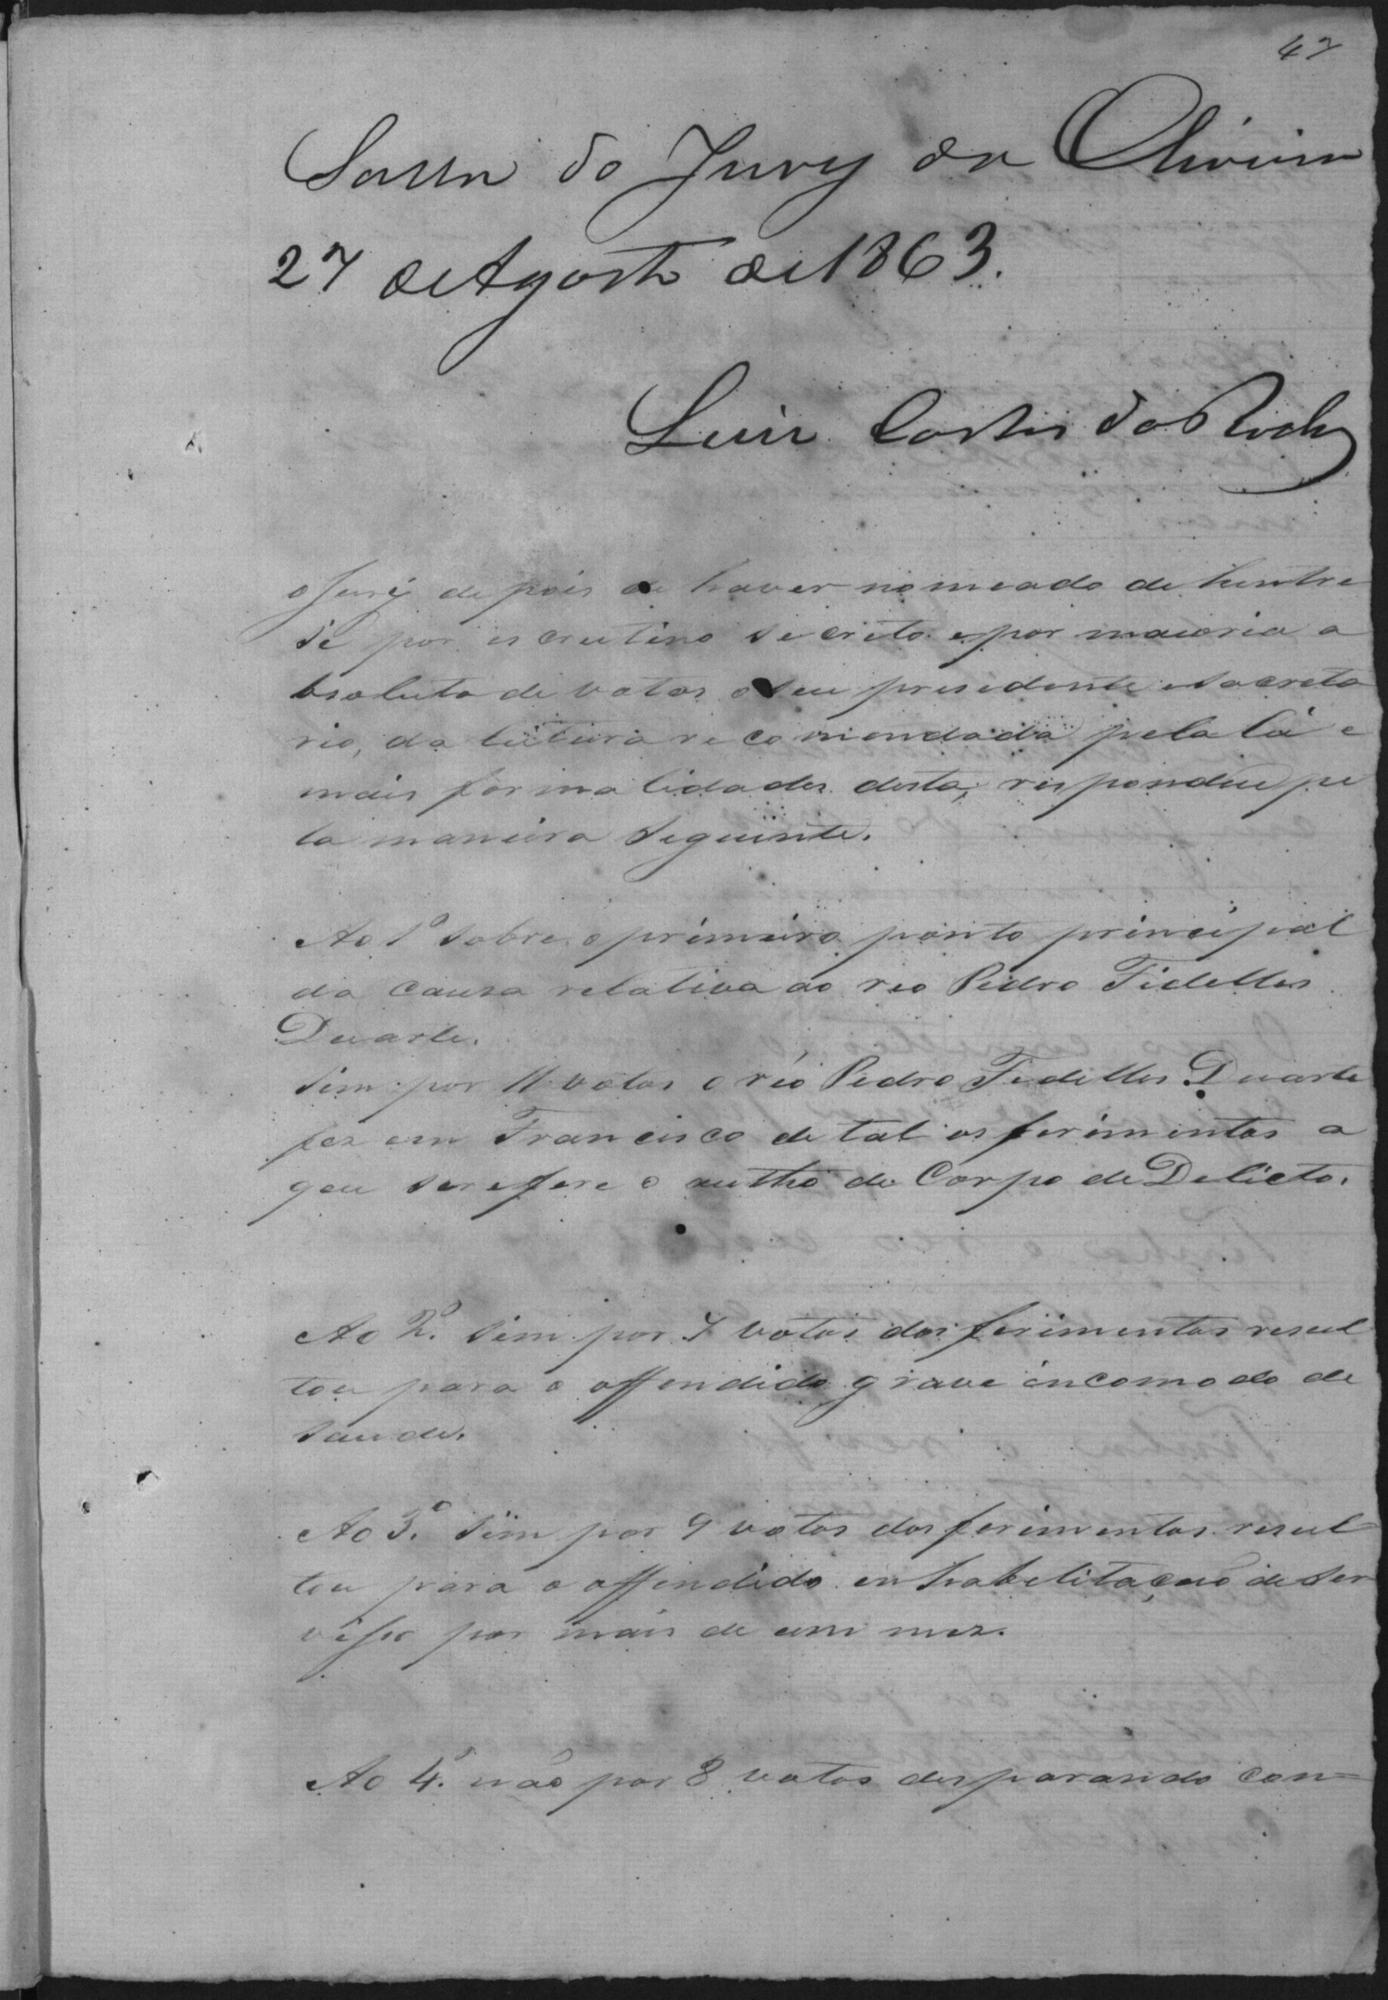 42
Salla do Jury da Oliveira
27 de Agosto de 1863.
Luis Cortes da Rocha
o Jury de pois de haver nomeado de hentre
si por escrutino secreto e por maioria a
bsoluta de votos o seu presidente e Secreta
rio, da leitura re comendada pela lei e
mais formalidades desta, respondeu pe
la maneira seguinte.
Ao 1º sobre o primeiro ponto principal
da causa relativa ao reo Pedro Fidelles
Duarte.
Sim por 11 votos o réo Pedro Fidelles Duarte
fez em Francisco de tal os ferimentos a
que se refere o autho de Corpo de Delicto.
Ao 2º. Sim por 7 votos dos ferimentos resul
tou para o offendido grave incomodo de
saude.
Ao 3º. Sim por 9 votos dos ferimentos resul
tou para o offendido enhabelitação de ser
viso por mais de um mez.
Ao 4º. não por 8 votos desparando con=